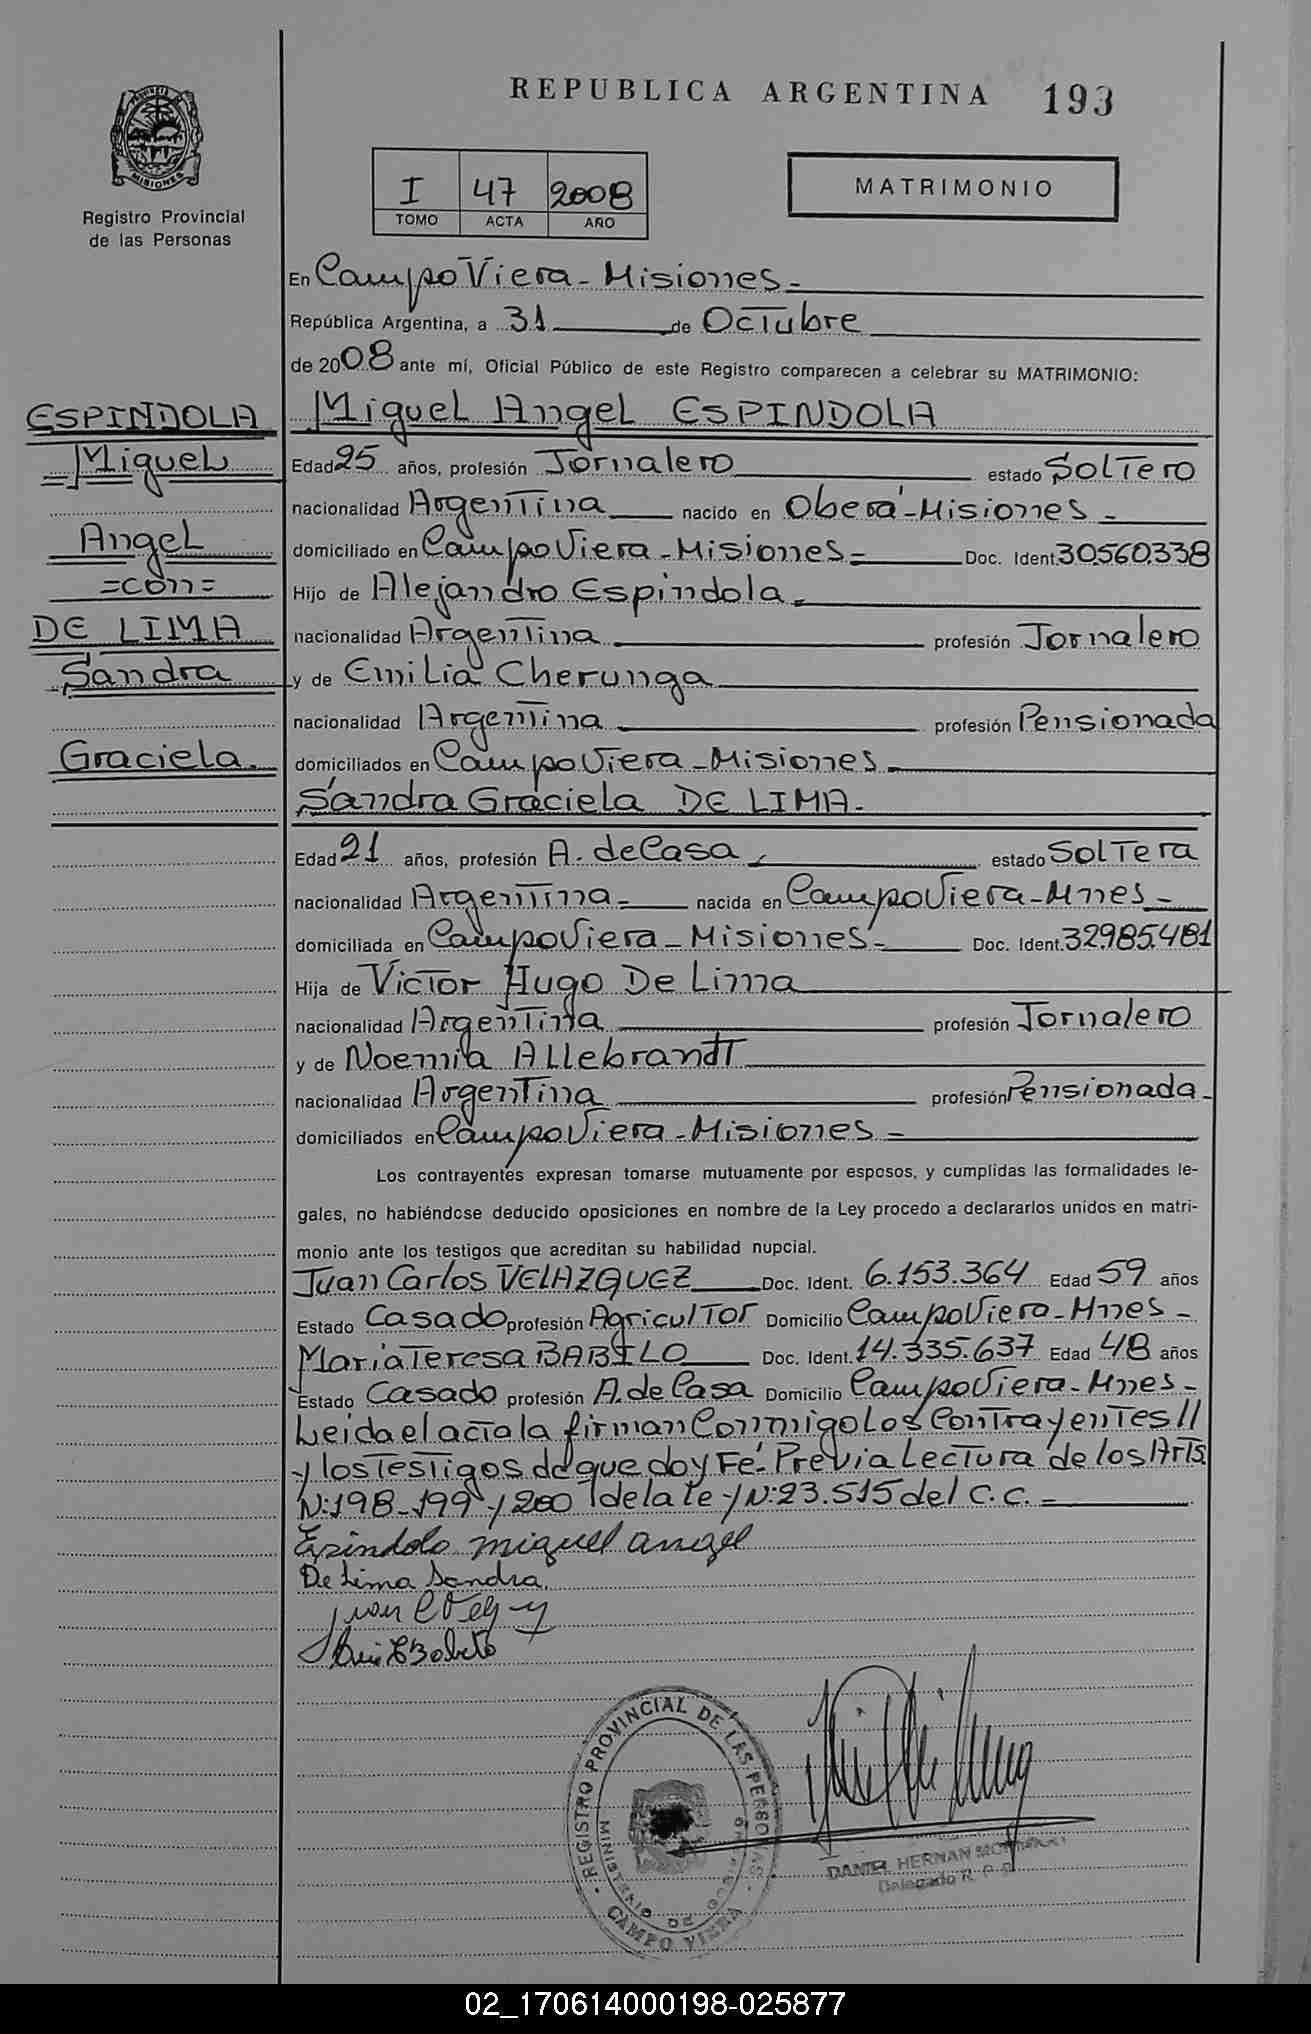 REPUBLICA ARGENTINA 193
PROVINCIA DE MISIONES
Registro Provincial
de las Personas
I 47 2008
TOMO ACTA AÑO
MATRIMONIO
En Campo Viera - Misiones -
República Argentina, a 31 de Octubre
de 2008 ante mí, Oficial Público de este Registro comparecen a celebrar su MATRIMONIO:
ESPINDOLA
Miguel
Angel
=con=
DE LIMA
Sandra
Graciela.
Miguel Angel ESPINDOLA
Edad 25 años, profesión Jornalero estado Soltero
nacionalidad Argentina nacido en Oberá - Misiones -
domiciliado en Campo Viera - Misiones = Doc. Ident. 30.560.338
Hijo de Alejandro Espindola.
nacionalidad Argentina profesión Jornalero
y de Emilia Cherunga
nacionalidad Argentina profesión Pensionada
domiciliados en Campo Viera - Misiones
Sandra Graciela DE LIMA.
Edad 21 años, profesión A. de Casa, estado Soltera
nacionalidad Argentina - nacida en Campo Viera - Mnes -
domiciliada en Campo Viera - Misiones - Doc. Ident. 32.985.481
Hija de Victor Hugo De Lima
nacionalidad Argentina profesión Jornalero
y de Noemia Allebrandt
nacionalidad Argentina profesión Pensionada -
domiciliados en Campo Viera - Misiones =
Los contrayentes expresan tomarse mutuamente por esposos, y cumplidas las formalidades le-
gales, no habiéndose deducido oposiciones en nombre de la Ley procedo a declararlos unidos en matri-
monio ante los testigos que acreditan su habilidad nupcial.
Juan Carlos VELAZQUEZ Doc. Ident. 6.153.364 Edad 59 años
Estado Casado profesión Agricultor Domicilio Campo Viera - Mnes -
Maria Teresa BABILO Doc. Ident. 14.335.637 Edad 48 años
Estado Casado profesión A. de Casa Domicilio Campo Viera - Mnes -
Leida el acta la firman Conmigo Los Contrayentes //
y los Testigos de que doy Fé. Previa Lectura de los Arts.
N: 198 - 199 y 200 de la Ley N: 23.515 del C.C. =
Espindola miguel angel
De Lima Sandra.
REGISTRO PROVINCIAL DE LAS PERSONAS
MINISTERIO DE GOBIERNO
CAMPO VIERA
DANIEL HERNAN
Delegado R. P. P.
02_170614000198-025877